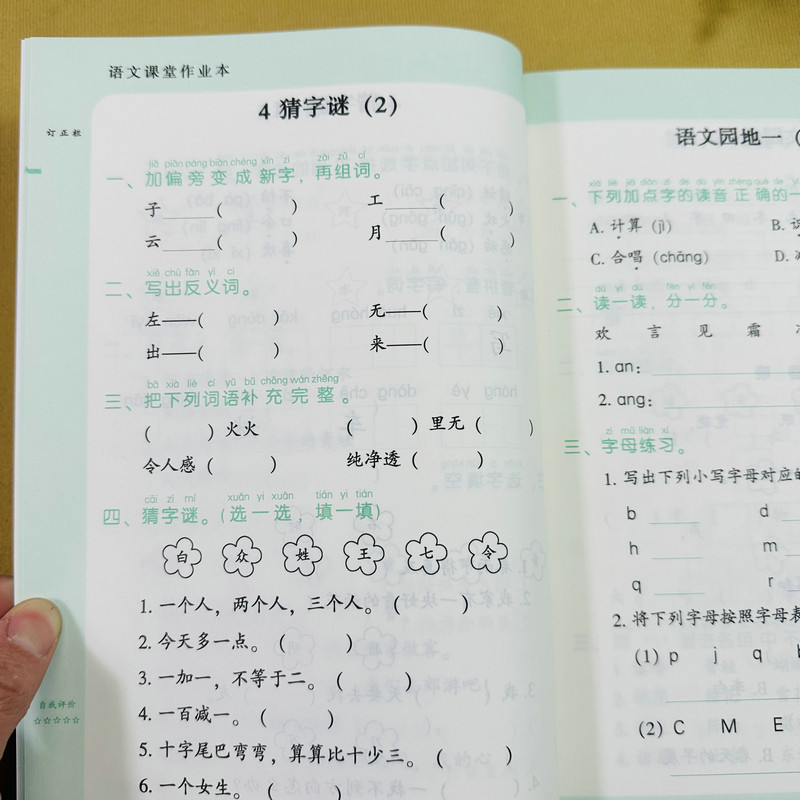 语文课堂作业本
4 猜字谜（2）
订正栏
jiā piān páng biàn chéng xīn zì zài zǔ cí
一、加偏旁变成新字，再组词。
子______(      ) 工______(      )
云______(      ) 月______(      )
xiě chū fǎn yì cí
二、写出反义词。
左——(      ) 无——(      )
出——(      ) 来——(      )
bǎ xià liè cí yǔ bǔ chōng wán zhěng
三、把下列词语补充完整。
(      )火火 (      )里无(      )
令人感(      ) 纯净透(      )
cāi zì mí xuǎn yi xuǎn tián yi tián
四、猜字谜。(选一选，填一填)
白 众 姓 王 七 令
1. 一个人，两个人，三个人。(      )
2. 今天多一点。(      )
3. 一加一，不等于二。(      )
4. 一百减一。(      )
5. 十字尾巴弯弯，算算比十少三。(      )
6. 一个女生。(      )
自我评价
☆☆☆☆☆
语文园地一（
一、下列加点字的读音正确的一
A. 计算（jì） B.
C. 合唱（chāng） D.
dú yi dú fēn yi fēn
二、读一读，分一分。
欢 言 见 霜
1. an：
2. ang：
zì mǔ liàn xí
三、字母练习。
1. 写出下列小写字母对应的
b ______ d
h ______ m
q ______ r
2. 将下列字母按照字母表
(1) p j q
(2) C M E